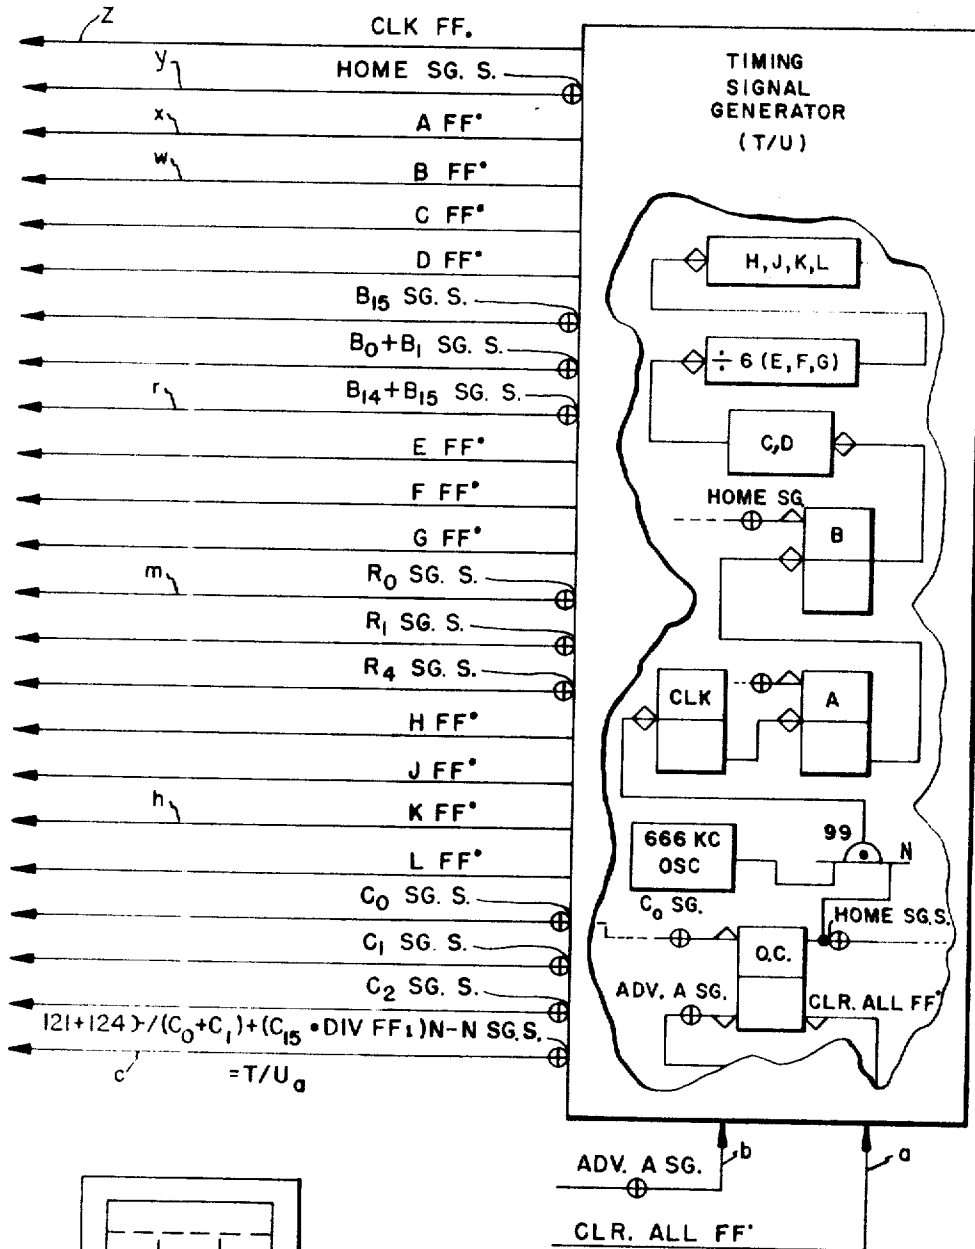 Z
CLK FF.
y
HOME SG. S.
x
A FF'
w
B FF'
C FF'
D FF'
B15 SG. S.
B0+B1 SG. S.
r
B14+B15 SG. S.
E FF'
F FF'
G FF'
m
R0 SG. S.
R1 SG. S.
R4 SG. S.
H FF'
J FF'
h
K FF'
L FF'
C0 SG. S.
C1 SG. S.
C2 SG. S.
(C0+C1)+(C15•DIV FF1)N-N SG.S.
c
=T/Ua
TIMING
SIGNAL
GENERATOR
(T/U)
H,J,K,L
÷ 6 (E,F,G)
C,D
HOME SG.
B
CLK
A
666 KC
OSC
99
N
C0 SG.
HOME SG.S.
O.C.
ADV. A SG.
CLR. ALL FF'
ADV. A SG.
b
a
CLR. ALL FF'